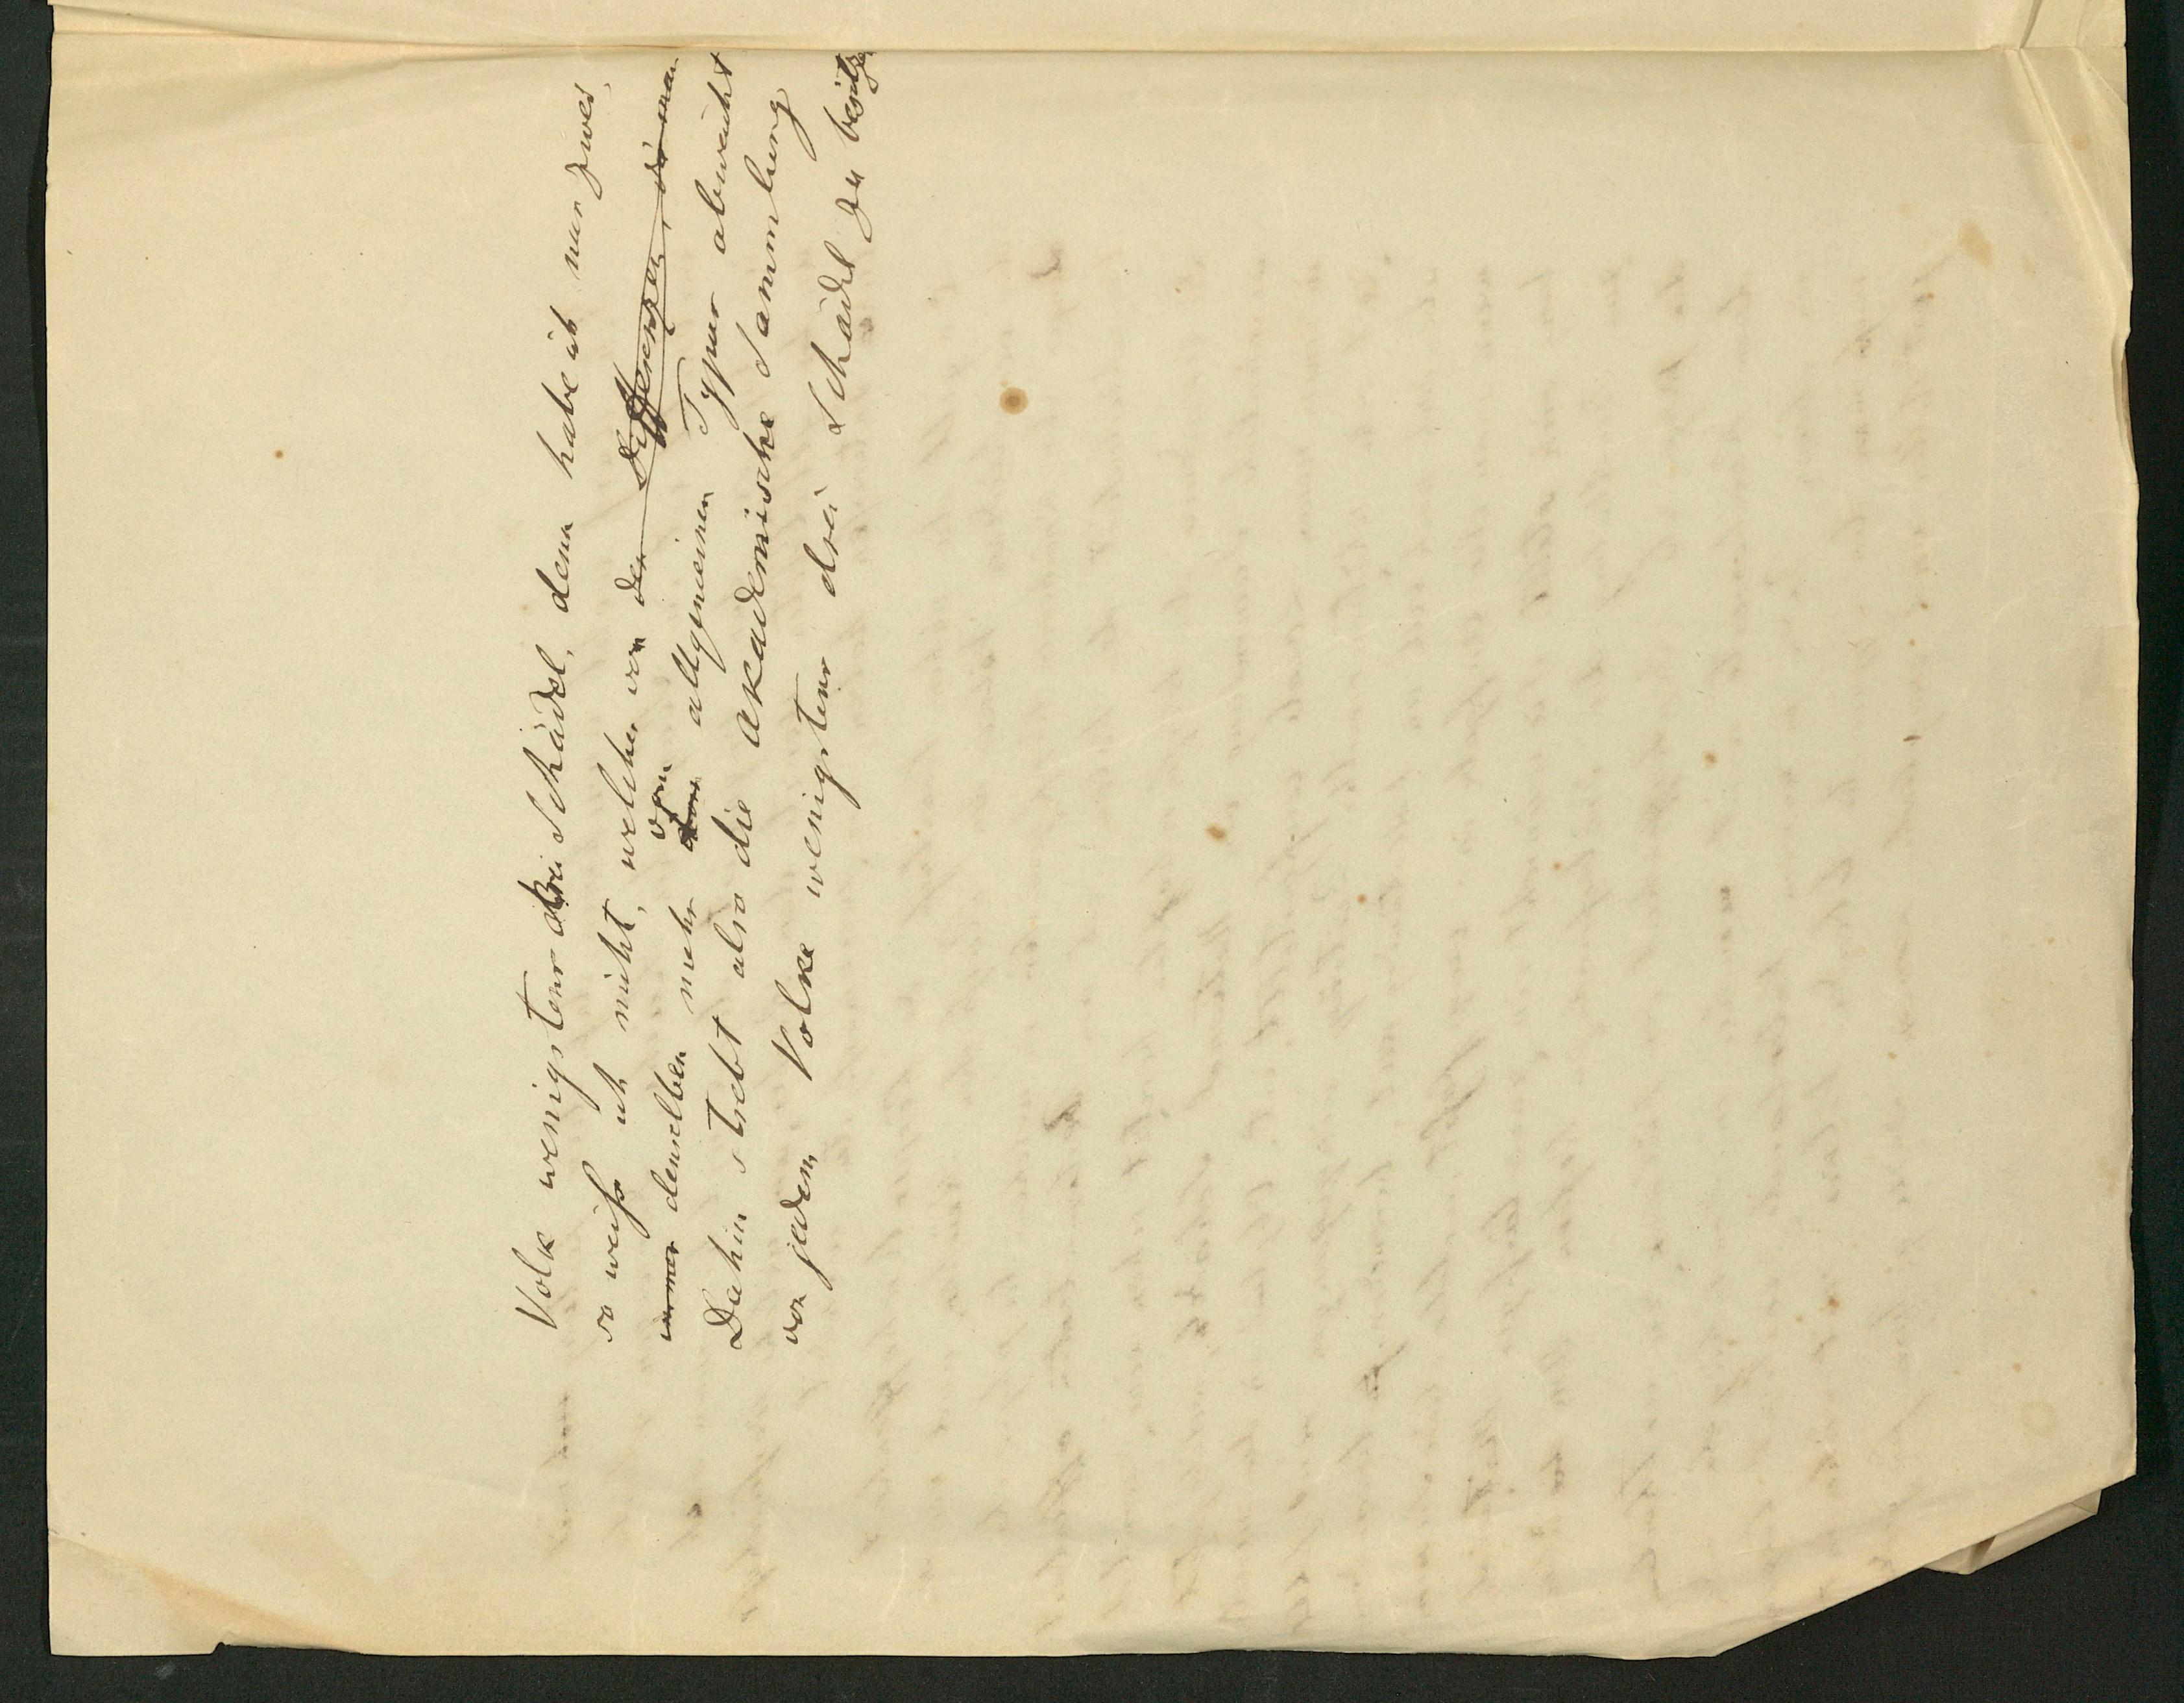 Volk wenigstens drei Schädel, denn habe ich nur zwei,
so weiss ich nicht, welcher von den Differenzen, die man
immer denselben mehr vom allgemeinen Typus abweicht
Dahin strebt also die akademische Sammlung
von jedem Volke wenigstens drei Schädel zu besitzen